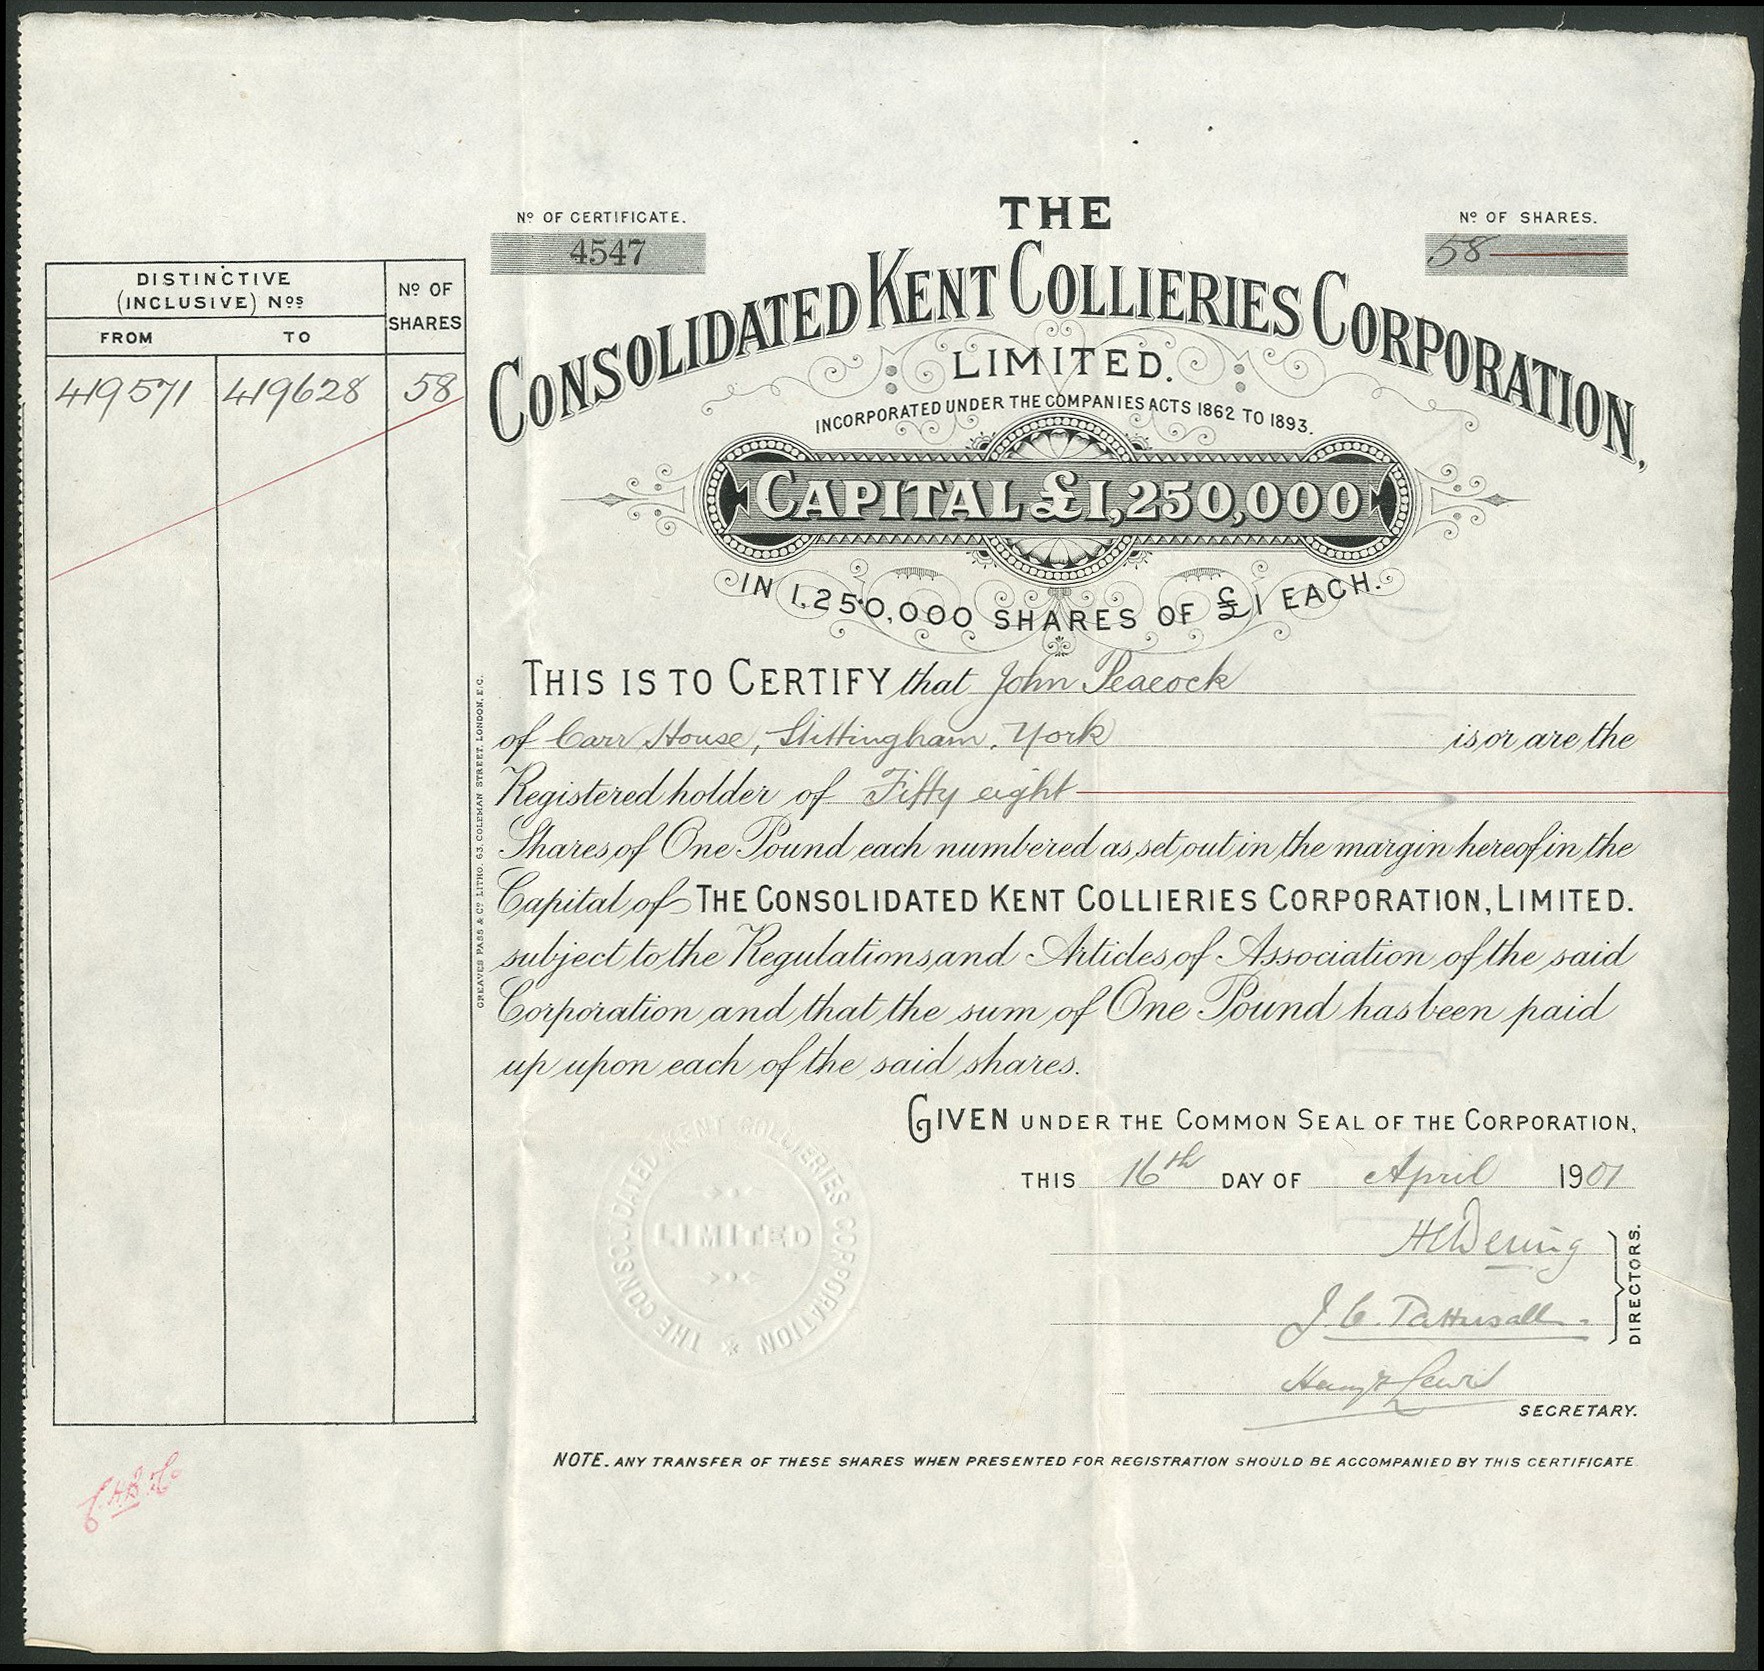 Nº OF CERTIFICATE.
4547
THE
Nº OF SHARES.
58
CONSOLIDATED KENT COLLIERIES CORPORATION,
LIMITED.
INCORPORATED UNDER THE COMPANIES ACTS 1862 TO 1893.
CAPITAL £1,250,000
IN 1,250,000 SHARES OF £1 EACH.
DISTINCTIVE
(INCLUSIVE) Nos
Nº OF
SHARES
FROM
TO
419571 419628 58
THIS IS TO CERTIFY that John Peacock
of Carr House, Stittingham, York is or are the
Registered holder of Fifty eight
Shares of One Pound each numbered as set out in the margin hereof in the
Capital of THE CONSOLIDATED KENT COLLIERIES CORPORATION, LIMITED.
subject to the Regulations and Articles of Association of the said
Corporation and that the sum of One Pound has been paid
up upon each of the said shares.
GIVEN UNDER THE COMMON SEAL OF THE CORPORATION,
THIS 16th DAY OF April 1901
DIRECTORS.
J. C. Tattersall.
SECRETARY.
THE CONSOLIDATED KENT COLLIERIES CORPORATION
LIMITED
NOTE. ANY TRANSFER OF THESE SHARES WHEN PRESENTED FOR REGISTRATION SHOULD BE ACCOMPANIED BY THIS CERTIFICATE
GREAVES PASS & Cº LITHO. 63. COLEMAN STREET. LONDON. E.C.